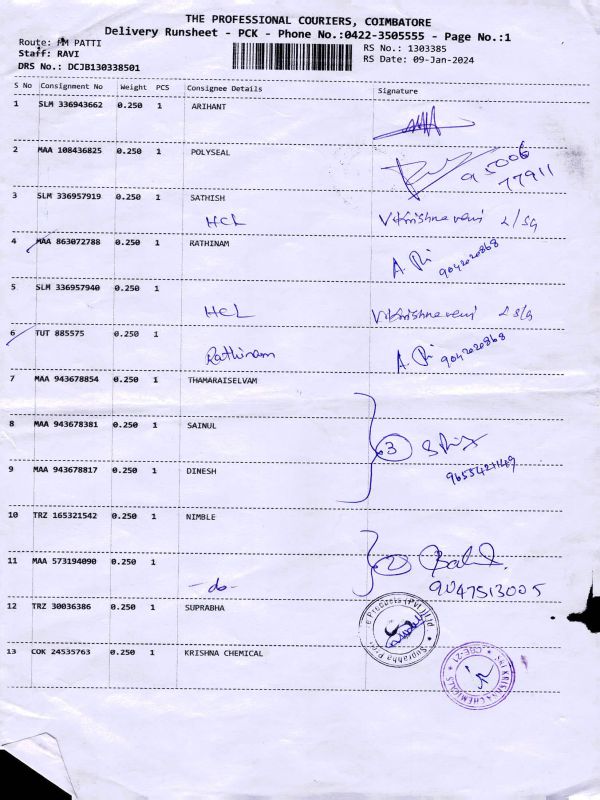 THE PROFESSIONAL COURIERS, COIMBATORE
Delivery Runsheet - PCK - Phone No.:0422-3505555 - Page No.:1
Route: PM PATTI
RS No.: 1303385
Staff: RAVI
RS Date: 09-Jan-2024
DRS No.: DCJB130338501
S No Consignment No Weight PCS Consignee Details Signature
1 SLM 336943662 0.250 1 ARIHANT
2 MAA 108436825 0.250 1 POLYSEAL
95006
77911
3 SLM 336957919 0.250 1 SATHISH
HCL
4 MAA 863072788 0.250 1 RATHINAM
9042020868
5 SLM 336957940 0.250 1
HCL
6 TUT 885575 0.250 1
Rathinam 9042020868
7 MAA 943678854 0.250 1 THAMARAISELVAM
8 MAA 943678381 0.250 1 SAINUL
3
9 MAA 943678817 0.250 1 DINESH
10 TRZ 165321542 0.250 1 NIMBLE
11 MAA 573194090 0.250 1
2
-do-
9047513005
12 TRZ 30036386 0.250 1 SUPRABHA
13 COK 24535763 0.250 1 KRISHNA CHEMICAL